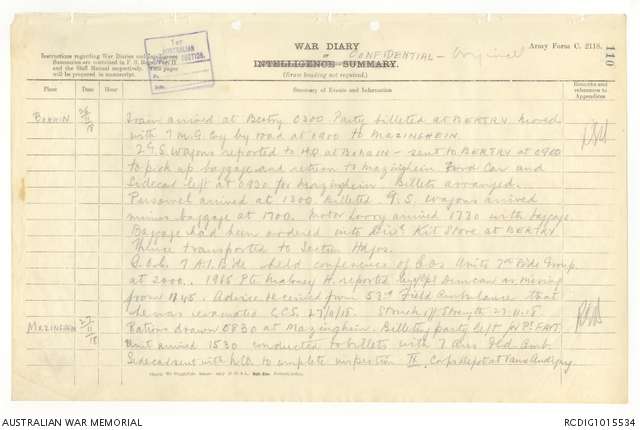 WAR DIARY
or
INTELLIGENCE SUMMARY.
CONFIDENTIAL — Original
(Erase heading not required.)
Army Form C. 2118.
110
Instructions regarding War Diaries and Intelligence
Summaries are contained in F. S. Regs., Part II.
and the Staff Manual respectively. Title pages
will be prepared in manuscript.
AUSTRALIAN
SECTION.
Date
Place Date Hour Summary of Events and Information Remarks and references to Appendices
BOHAIN 26/11/18 Train arrived at Bertry 0300 Party billeted at BERTRY moved
with 7 M.G. Coy by road at 0900 to MAZINGHEIN.
2 G.S. Wagons reported to HQ at BOHAIN — sent to BERTRY at 0900
to pick up baggage and return to Mazinghein Ford Car and
Sidecar left at 0930 for Mazinghein Billets arranged.
Personnel arrived at 1300 Billeted G.S. Wagons arrived
minus baggage at 1700. Motor Lorry arrived 1730 with baggage.
Baggage had been ordered with Divl Kit Store at BERTRY
thence transported to Section Hdqrs.
G.O.C. 7 A.I. Bde held conference of C.Os Units 7th Bde Group
at 2000. 1985 Pte Maloney H. reported by Cpl Duncan as missing
from 1745. Advice received from 53rd Field Ambulance that
he was evacuated C.C.S. 27/11/18. Struck off Strength 27-11-18
MAZINGHEIN 27/11/18 Rations drawn 0830 at Mazinghein. Billeting party left for
Unit arrived 1530 conducted to billets with 7 Aus Fld Amb.
Sidecar sent with to complete inspection Corps Depot at